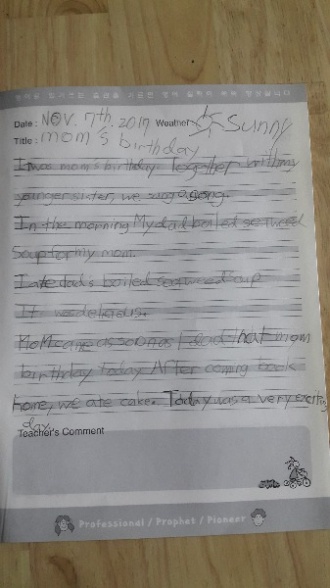 Date: NOV. 7th. 2017 Weather Sunny
Title: mom's birthday
It was mom's birthday. Together with my
younger sister, we sang a song.
In the morning My dad boiled seaweed
Soup for my mom.
I ate dad's boiled seaweed soup
It was delicious.
MoM came as soon as I that mom
birthday today. After coming back
here, we ate cake. Today was a very
day.
Teacher's Comment
Professional / Prophet / Pioneer